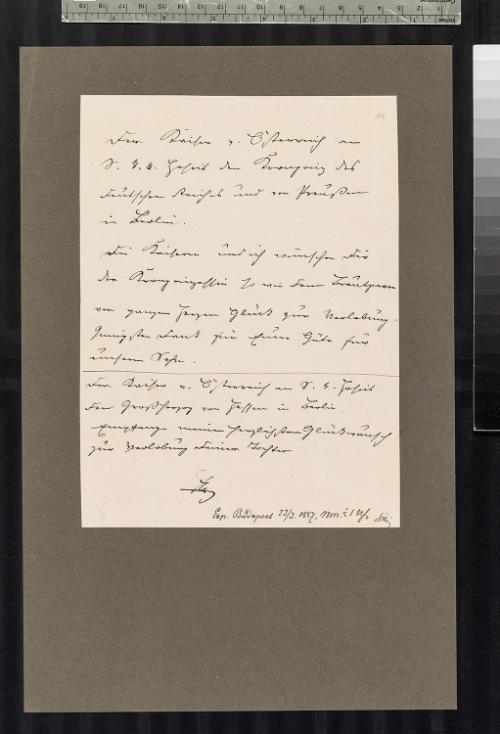 Der Kaiser v. Österreich an
S. k. k. Hoheit den Kronprinz des
deutschen Reiches und von Preußen
in Berlin.
Die Kaiserin und ich wünschen Dir
der Kronprinzessin so wie dem Brautpaar
von ganzem Herzen Glück zur Verlobung.
Innigsten Dank für Eure Güte für
unseren Sohn.
Der Kaiser v. Österreich an S. k. Hoheit
den Großherzog von Hessen in Berlin.
Empfange meinen herzlichsten Glückwunsch
zur Verlobung Deiner Tochter
Exp. Budapest 23/3. 1887, 1 Uhr